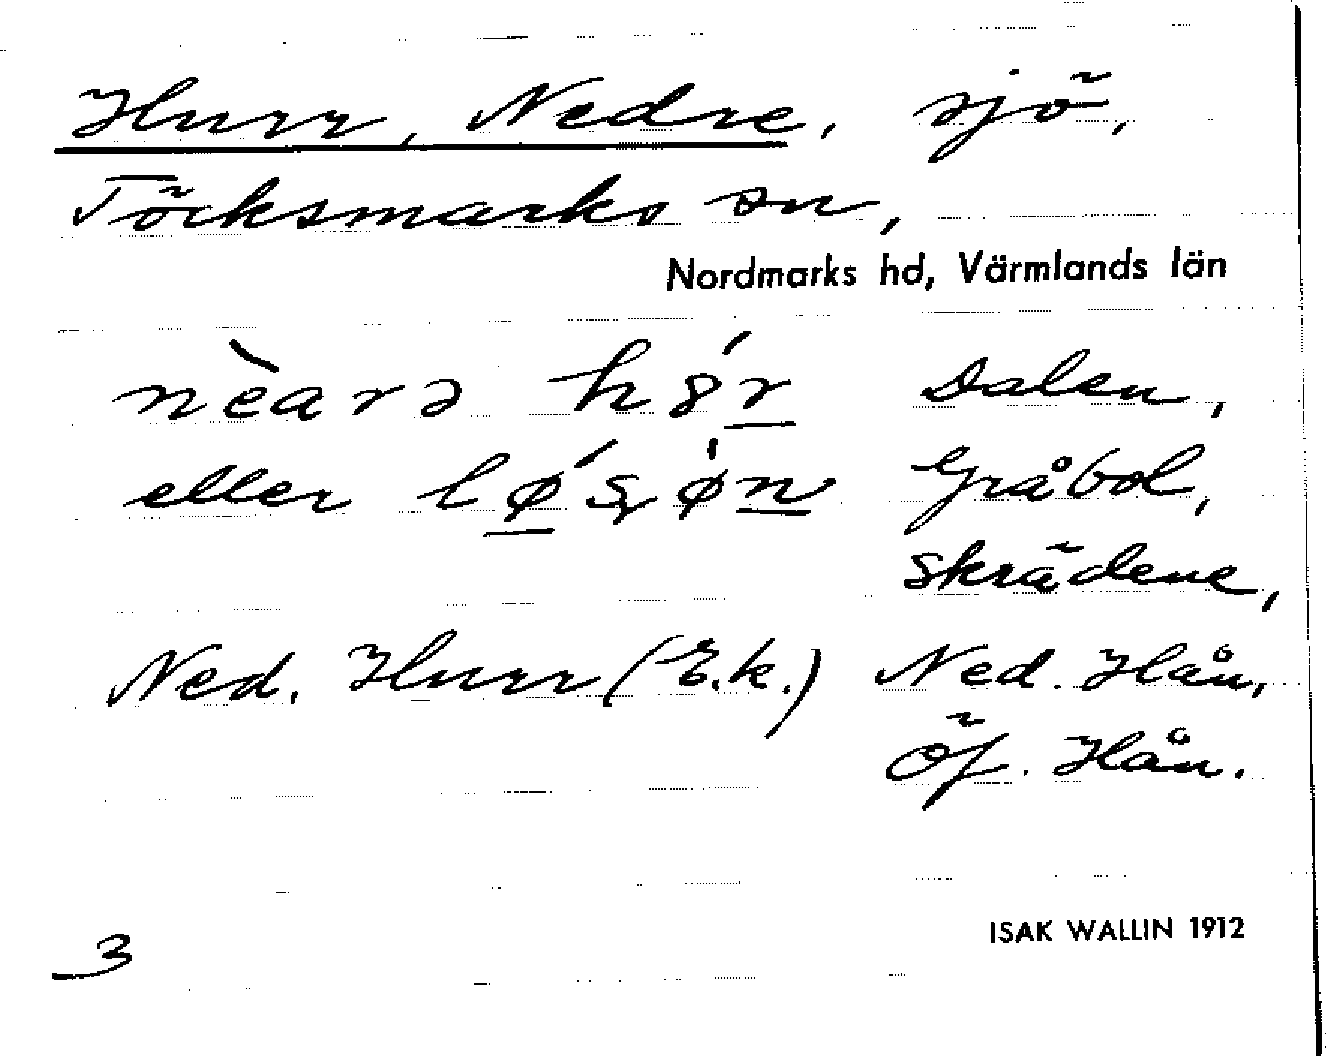 Hurr, Nedre, sjö,
Töcksmarks sn,
Nordmarks hd, Värmlands län
nèarə hȣ́r Dalen,
eller lǿsøn Gråbol,
Skrädene,
Ned. Hurr (E.k.) Ned. Hån,
Öf. Hån.
3
ISAK WALLIN 1912